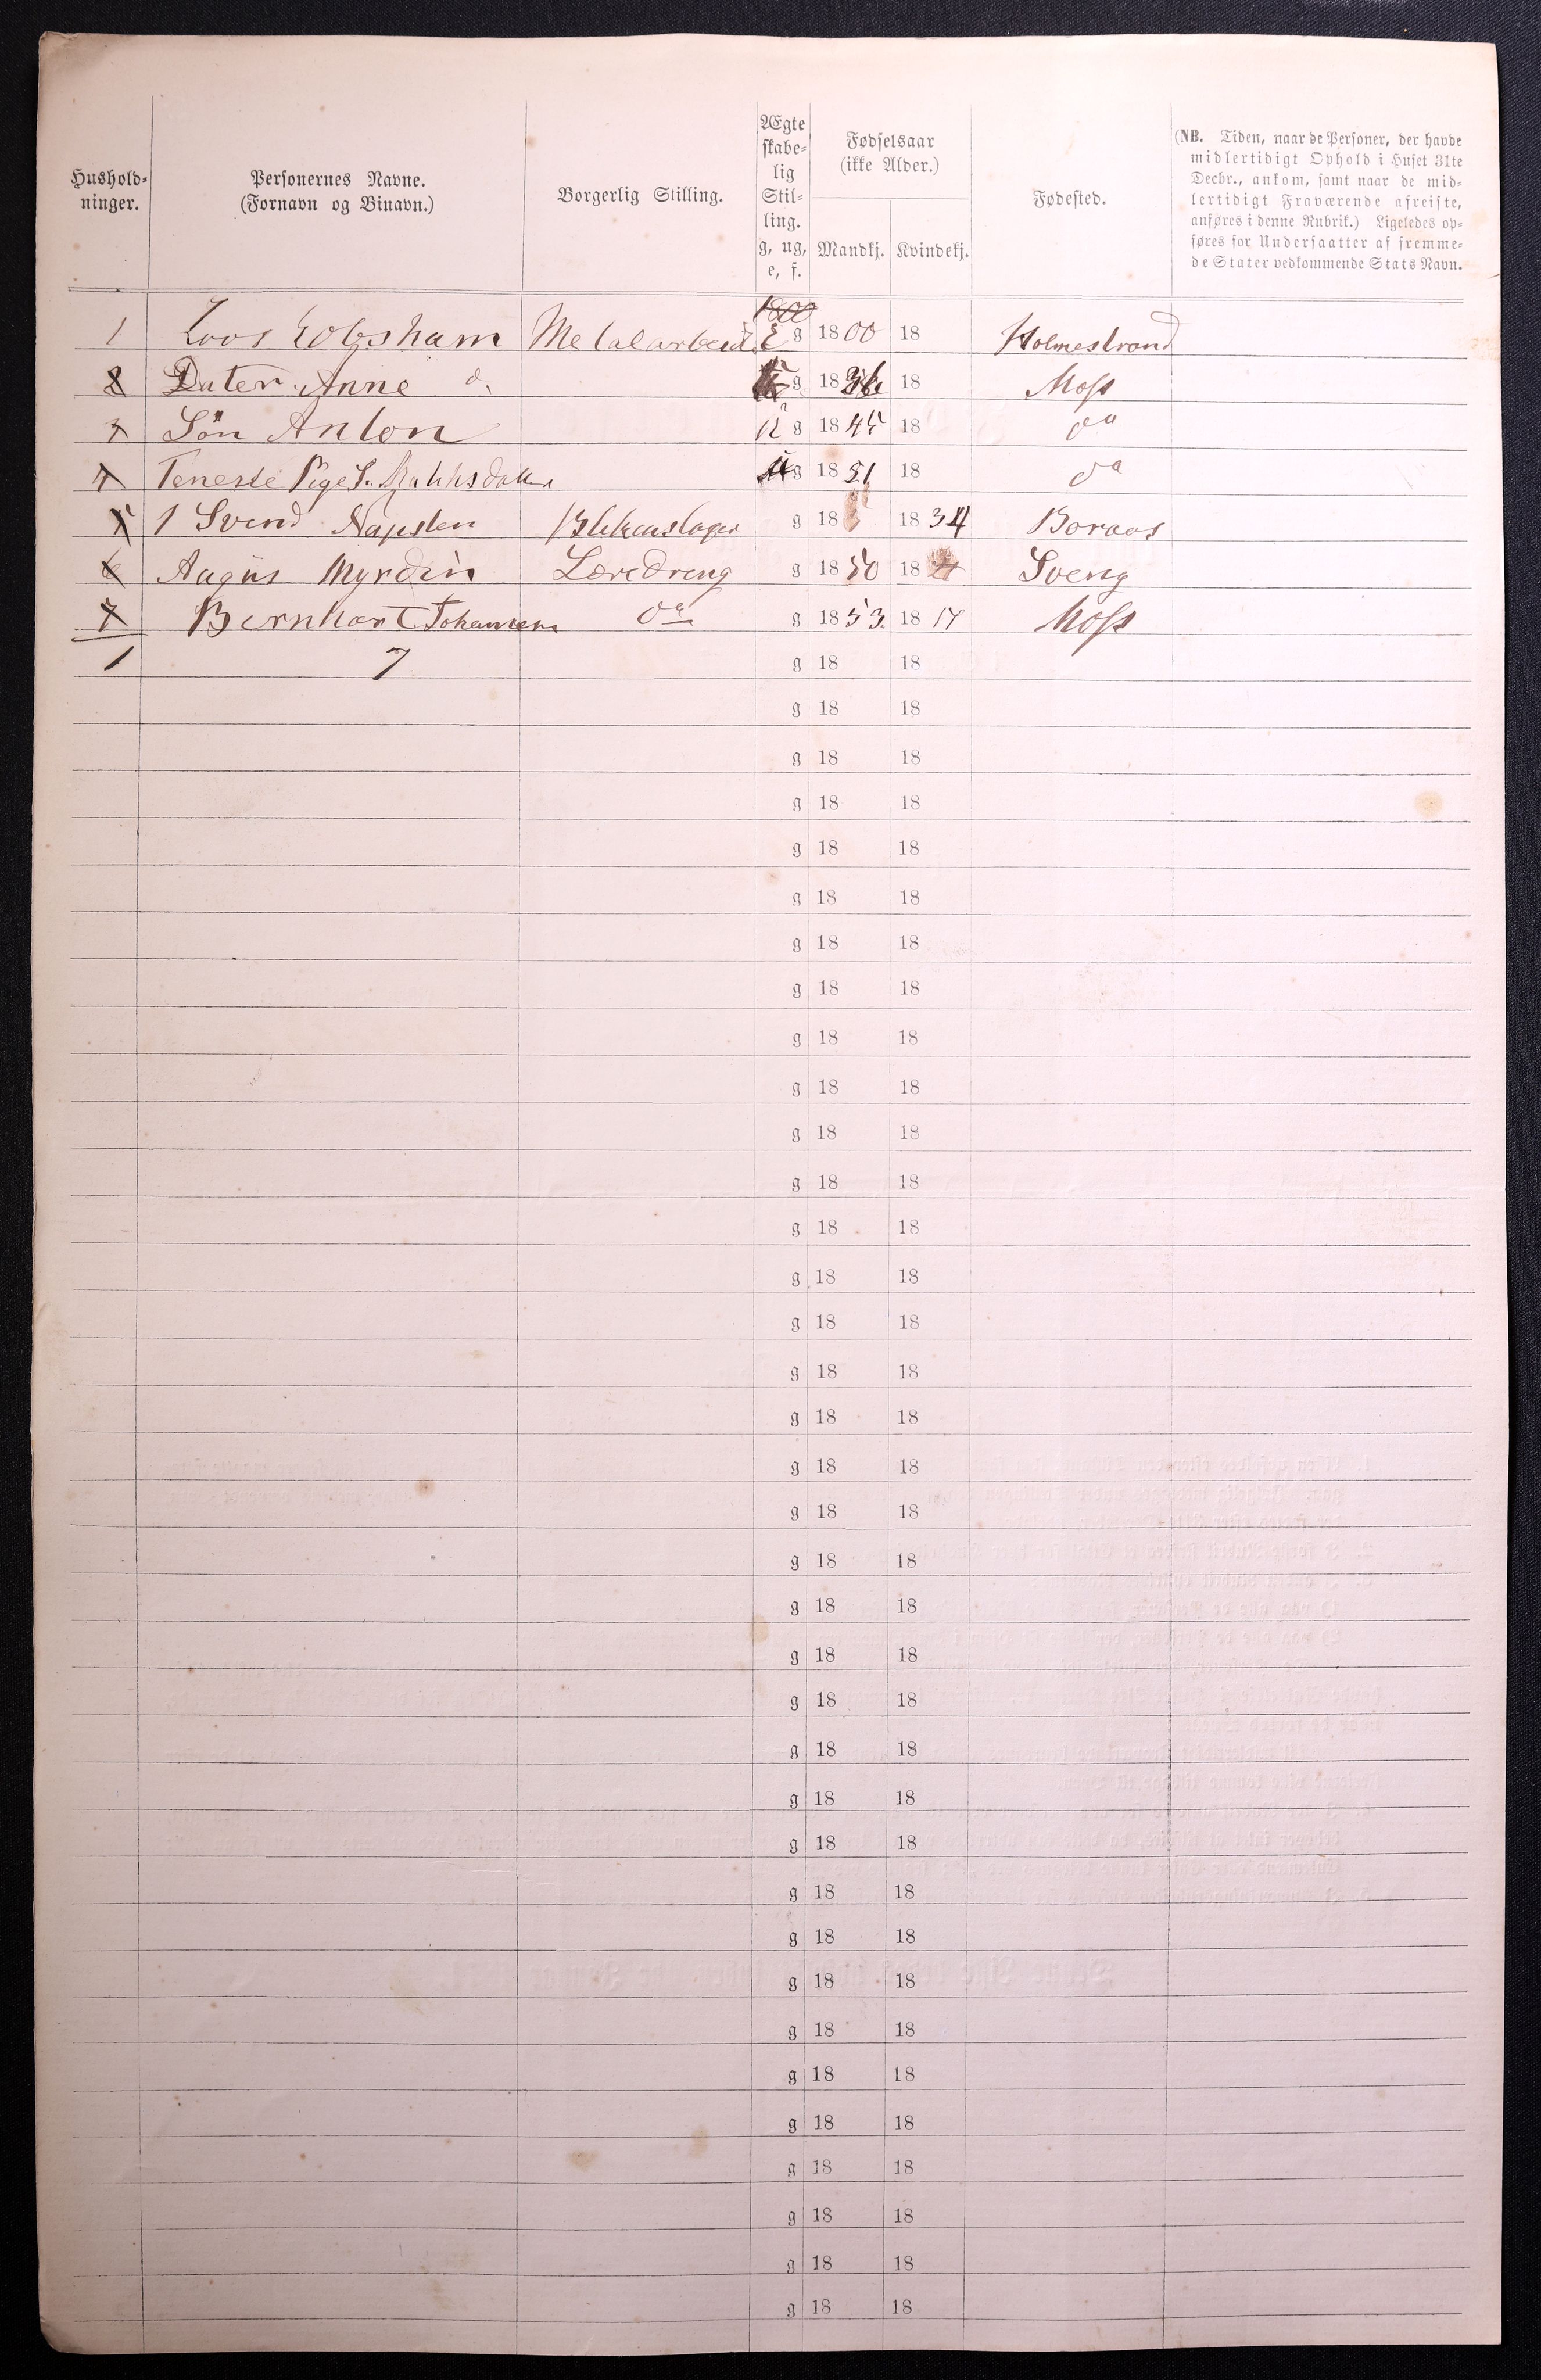 Hushold-
ninger.
Personernes Navne.
(Fornavn og Binavn.)
Borgerlig Stilling.
Ægte
skabe-
lig
Stil-
ling.
g, ug,
e, f.
Fødselsaar
(ikke Alder.)
Mandkj. Kvindekj.
Fødested.
(NB. Tiden, naar de Personer, der havde
midlertidigt Ophold i Huset 31te
Decbr., ankom, samt naar de mid-
lertidigt Fraværende afreiste,
anføres i denne Rubrik.) Ligeledes op-
føres for Undersaatter af fremme-
de Stater vedkommende Stats Navn.
1800
1 E g 1800 18 Holmestrand
2 Dater Anne d. g 1836 18 Moss
3 Sön Anton g 1845 18 da
4 Teneste Pige g 1851 18 da
5 1 Svend g 18 1834 Boraas
6 Myrdin Læredreng g 1850 18 Sverig
7 Bernhart Johansen da g 1853. 1817 Moss
1 7 g 18 18
g 18 18
g 18 18
g 18 18
g 18 18
g 18 18
g 18 18
g 18 18
g 18 18
g 18 18
g 18 18
g 18 18
g 18 18
g 18 18
g 18 18
g 18 18
g 18 18
g 18 18
g 18 18
g 18 18
g 18 18
g 18 18
g 18 18
g 18 18
g 18 18
g 18 18
g 18 18
g 18 18
g 18 18
g 18 18
g 18 18
g 18 18
g 18 18
g 18 18
g 18 18
g 18 18